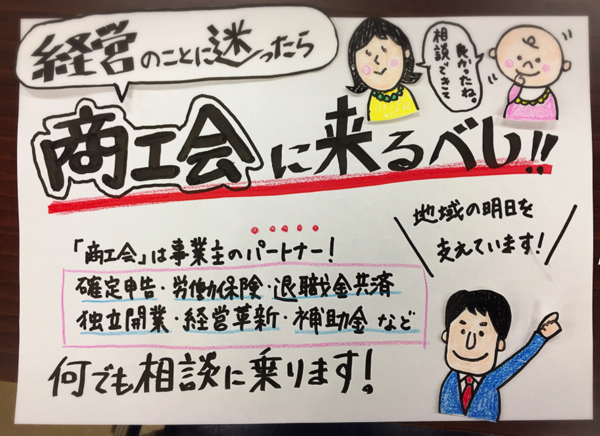 経営のことに迷ったら
良かったね。
相談できて
商工会に来るべし!!
地域の明日を
支えています!
「商工会」は事業主のパートナー!
確定申告・労働保険・退職金共済
独立開業・経営革新・補助金など
何でも相談に乗ります!